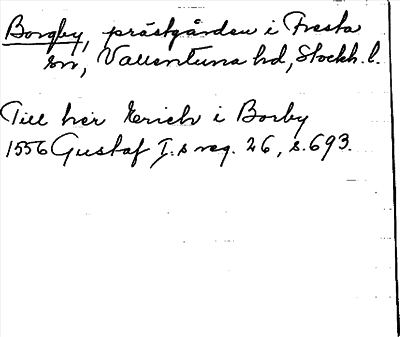 Borgby, prästgården i Fresta
sn, Vallentuna hd, Stockh. l.
Till her Erich i Borby
1556 Gustaf I.s reg. 26, s. 693.